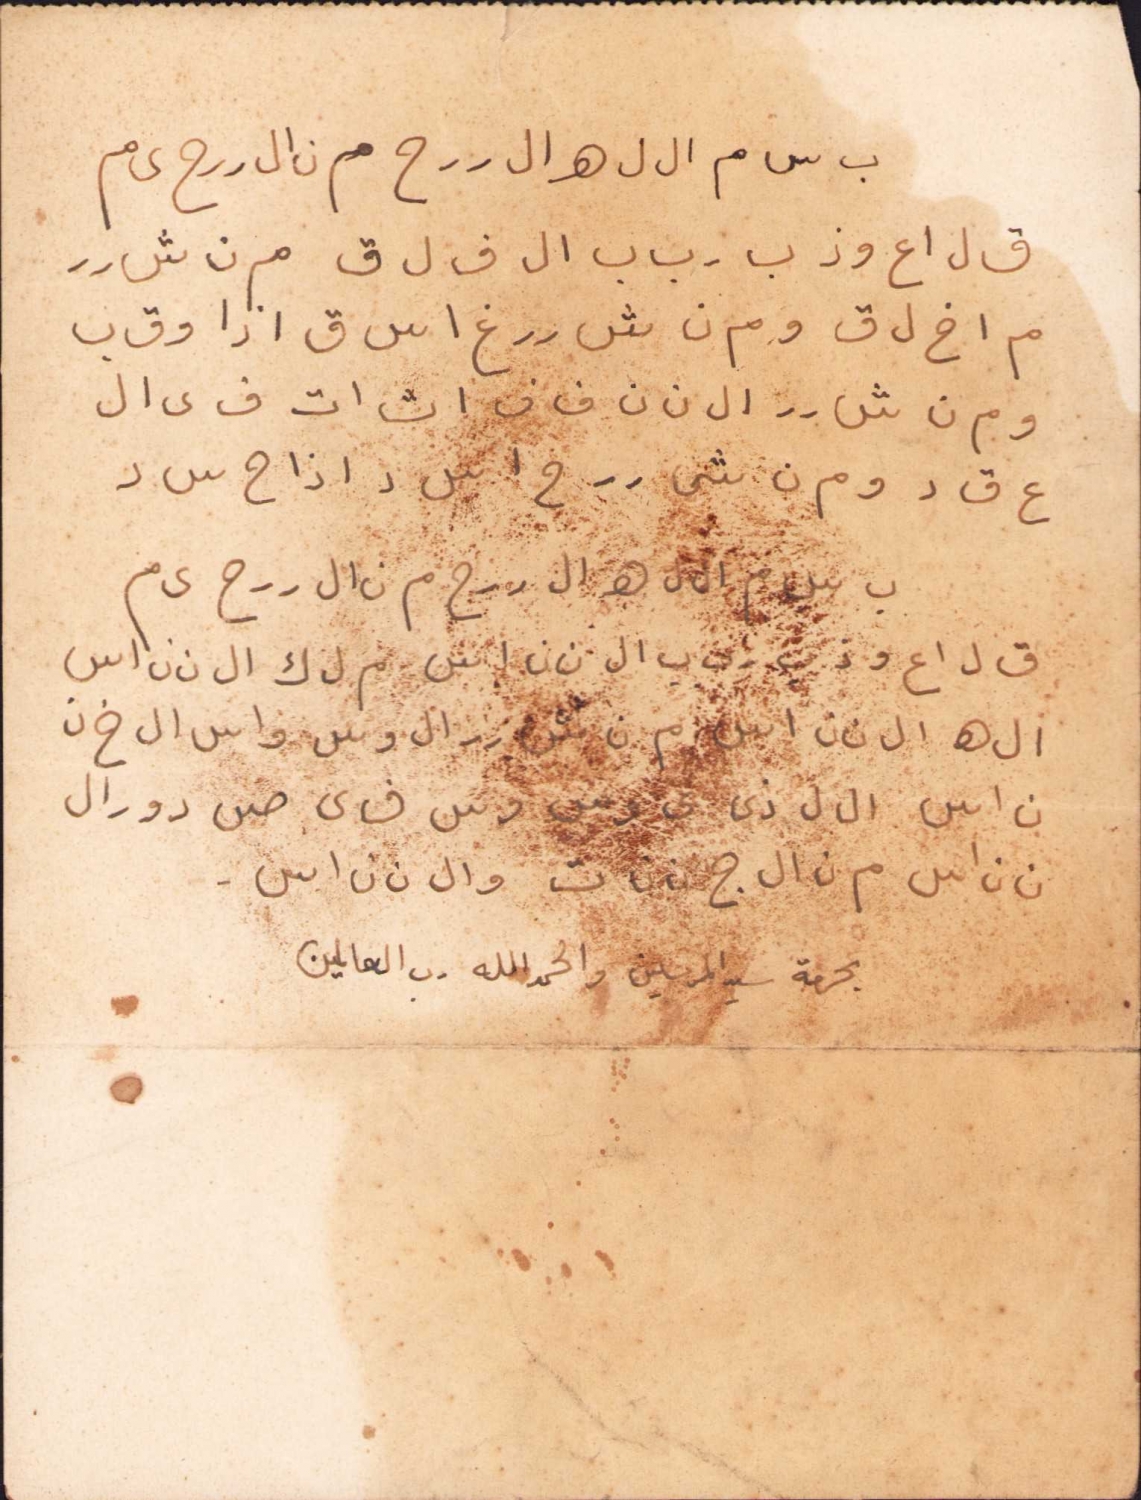 ب س م ال ل ه ال ر ر ح م ن ال ر ر ح ى م
ق ل اع وذ ب ر ب ب ال ف ل ق م ن ش ر ر
م ا خ ل ق و م ن ش ر ر غ ا س ق اذا وق ب
و م ن ش ر ر ال ن ن ف ف ا ث ات ف ى ال
ع ق د و م ن ش ر ر ح ا س د اذا ح س د
ب س م ال ل ه ال ر ر ح م ن ال ر ر ح ى م
ق ل اع وذ ب ر ب ب ال ن ن اس م ل ك ال ن ن اس
ال ه ال ن ن اس م ن ش ر ر ال وس واس ال خ ن
ن اس ال ل ذى ى وس وس ف ى ص دور ال
ن ن اس م ن ال ج ن ن ت وال ن ن اس -
بحرمة سيد المرسلين والحمد الله رب العالمين